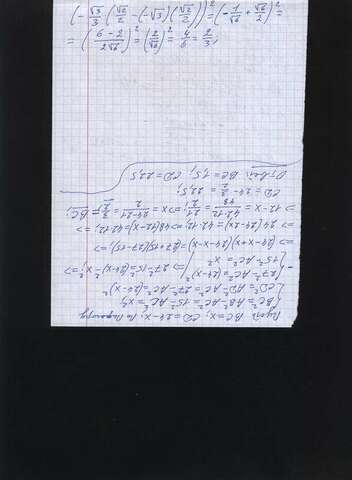 (-√3/3 (√2/2 - (-√3)(√2/2)))² = (-1/√6 + √6/2)² =
= ((6-2)/(2√6))² = (2/√6)² = 4/6 = 2/3;
Пусть BC = x; CD = 24-x; По Пифагору
{BC² = AB² - AC² = 15² - AC² = x²
{CD² = AD² - AC² = 27² - AC² = (24-x)²
- {27² - AC² = (24-x)²
{15² - AC² = x² => 27² - 15² = (24-x)² - x²; =>
=> (24-x+x)(24-x-x) = (27+15)(27-15); =>
=> 24(24-2x) = 42·12; => 48(12-x) = 42·12; =>
=> 12-x = 42·12/48 = 21/2 => x = (24-21)/2 = 3/2 = BC;
CD = 24 - 3/2 = 22,5;
Ответ: BC = 1,5; CD = 22,5